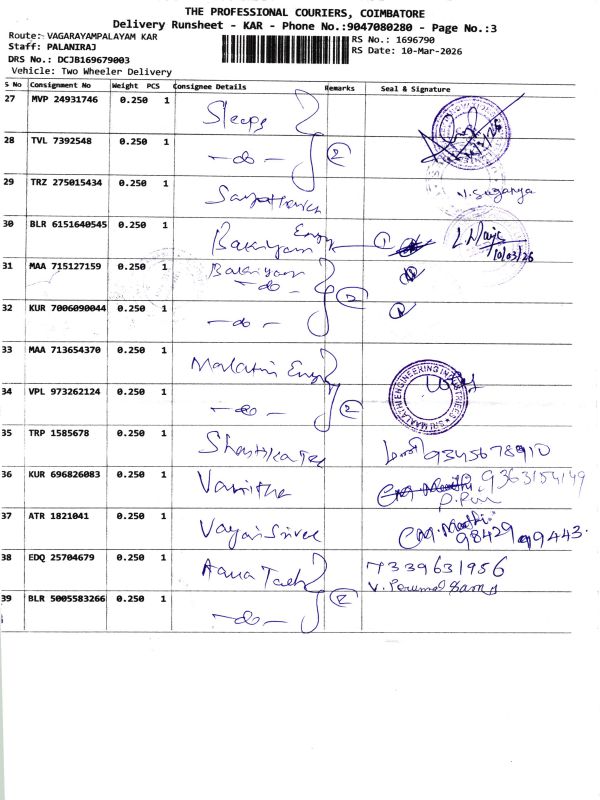 THE PROFESSIONAL COURIERS, COIMBATORE
Delivery Runsheet - KAR - Phone No.:9047080280 - Page No.:3
Route: VAGARAYAMPALAYAM KAR
RS No.: 1696790
Staff: PALANIRAJ
RS Date: 10-Mar-2026
DRS No.: DCJB169679003
Vehicle: Two Wheeler Delivery
S No Consignment No Weight PCS Consignee Details Remarks Seal & Signature
27 MVP 24931746 0.250 1 Sleepy
28 TVL 7392548 0.250 1 -do- 2
29 TRZ 275015434 0.250 1
30 BLR 6151640545 0.250 1 1 10/03/26
31 MAA 715127159 0.250 1 -do-
32 KUR 7006090044 0.250 1 -do- 2
33 MAA 713654370 0.250 1
34 VPL 973262124 0.250 1 -do- 2
SRI MAALATHI ENGINEERING INDUSTRIES
35 TRP 1585678 0.250 1 9345678910
36 KUR 696826083 0.250 1 Vanitha 9363154149
37 ATR 1821041 0.250 1 98429 99443.
38 EDQ 25704679 0.250 1 7339631956
39 BLR 5005583266 0.250 1 -do- 2